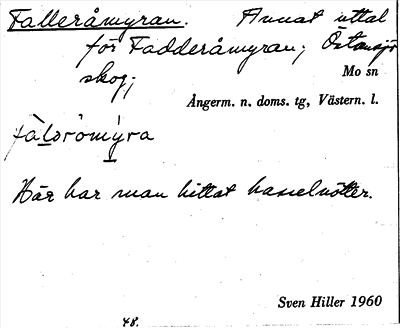 Falleråmyran. Annat uttal
för Fadderåmyran; Östansjö
skog;
Mo sn
Ångerm. n. doms. tg, Västern. l.
fàlərömýra
Här har man hittat hasselnötter.
Sven Hiller 1960
48.